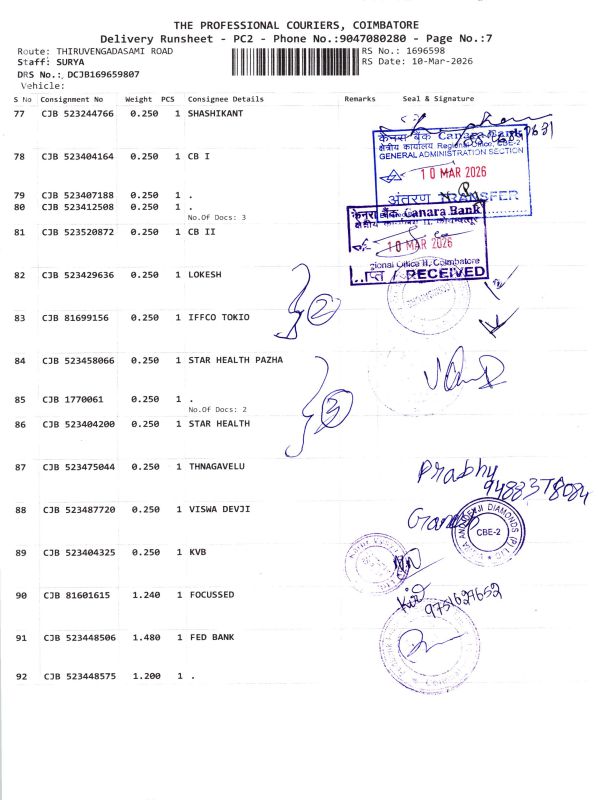 THE PROFESSIONAL COURIERS, COIMBATORE
Delivery Runsheet - PC2 - Phone No.:9047080280 - Page No.:7
Route: THIRUVENGADASAMI ROAD RS No.: 1696598
Staff: SURYA RS Date: 10-Mar-2026
DRS No.: DCJB169659807
Vehicle:
S No Consignment No Weight PCS Consignee Details Remarks Seal & Signature
77 CJB 523244766 0.250 1 SHASHIKANT
केनरा बैंक Canara Bank
क्षेत्रीय कार्यालय Regional Office, CBE-2
GENERAL ADMINISTRATION SECTION
78 CJB 523404164 0.250 1 CB I
10 MAR 2026
अंतरण TRANSFER
79 CJB 523407188 0.250 1 .
80 CJB 523412508 0.250 1 .
No.Of Docs: 3
केनरा बैंक Canara Bank
81 CJB 523520872 0.250 1 CB II
10 MAR 2026
gional Office II, Coimbatore
प्ति / RECEIVED
82 CJB 523429636 0.250 1 LOKESH
2
83 CJB 81699156 0.250 1 IFFCO TOKIO
84 CJB 523458066 0.250 1 STAR HEALTH PAZHA
85 CJB 1770061 0.250 1 .
No.Of Docs: 2
3
86 CJB 523404200 0.250 1 STAR HEALTH
87 CJB 523475044 0.250 1 THNAGAVELU
Prabhy
9488378084
88 CJB 523487720 0.250 1 VISWA DEVJI
Ganesh
DIAMONDS (P) LTD
CBE-2
89 CJB 523404325 0.250 1 KVB
90 CJB 81601615 1.240 1 FOCUSSED
9751627652
91 CJB 523448506 1.480 1 FED BANK
92 CJB 523448575 1.200 1 .